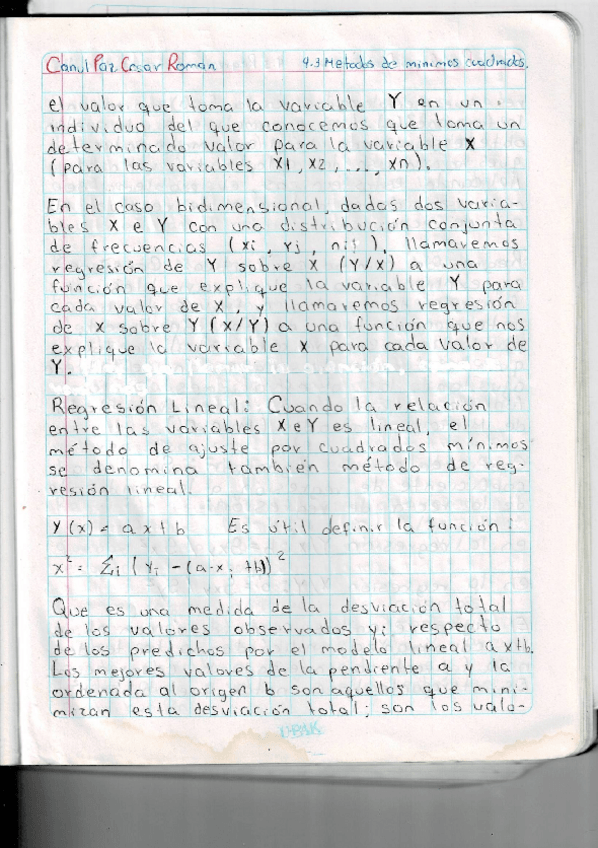 Canul Paz Cesar Roman 4.3 Metodos de minimos cuadrados.
el valor que toma la variable Y en un
individuo del que conocemos que toma un
determinado valor para la variable X
(para las variables X1, X2, ..., Xn).
En el caso bidimensional, dadas dos varia-
bles X e Y con una distribución conjunta
de frecuencias (xi, yj, nij), llamaremos
regresión de Y sobre X (Y/X) a una
función que explique la variable Y para
cada valor de X, y llamaremos regresión
de X sobre Y (X/Y) a una función que nos
explique la variable X para cada valor de
Y.
Regresión Lineal: Cuando la relación
entre las variables X e Y es lineal, el
método de ajuste por cuadrados mínimos
se denomina también método de reg-
resión lineal.
Y(x) = ax+b Es útil definir la función:
x² = Σi (Yi - (a·xi + b))²
Que es una medida de la desviación total
de los valores observados yi respecto
de los predichos por el modelo lineal ax+b.
Los mejores valores de la pendiente a y la
ordenada al origen b son aquellos que mini-
mizan esta desviación total; son los valo-